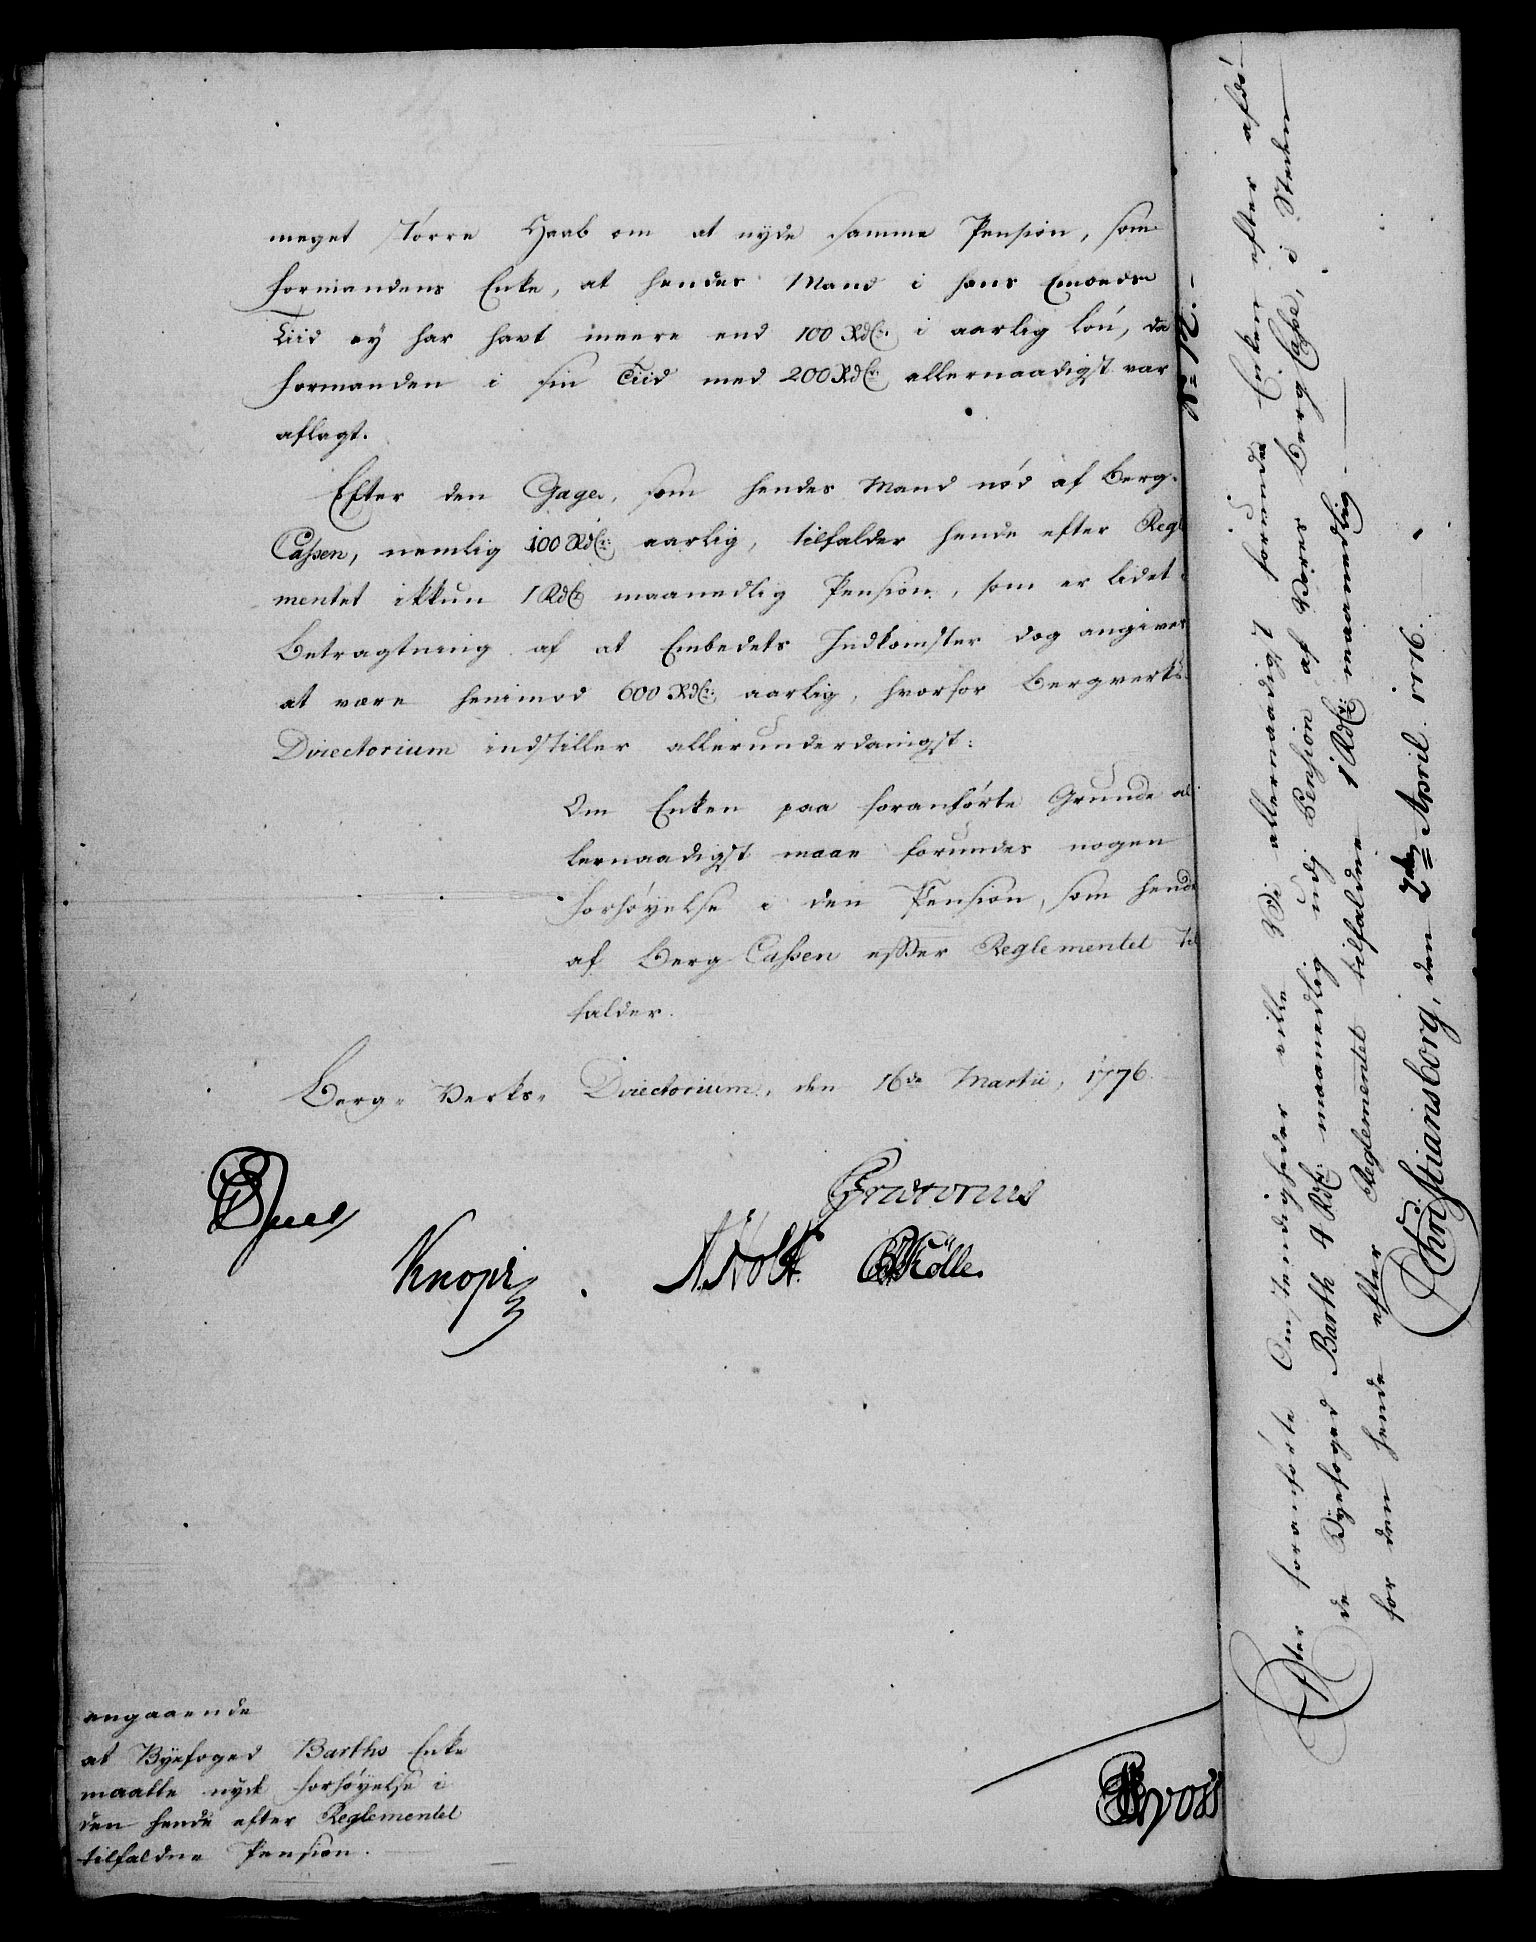 meget større Haab om at nyde samme Pension, som
Formandens Enke, at hendes Mand i hans Embeds
Tiid ey har havt meere end 100 Rdlr: i aarlig Løn, da
Formanden i sin Tiid med 200 Rdlr: allernaadigst var
aflagt.
Efter den Gage, som hendes Mand nød af Berg-
Cassen, nemlig 100 Rdlr: aarlig, tilfalder hende efter Regl
mentet ikkun 1 Rdlr maanedlig Pension, som er lidet i
Betragtning af at Embedets Indkomster dog angives
at være henimod 600 Rdlr: aarlig, hvorfor Bergverks-
Directorium indstiller allerunderdanigst:
Om Enken paa foranførte Grunde al
lernaadigst maae forundes nogen
Forhøyelse i den Pension, som hende
af Berg Cassen efter Reglementet til
falder.
Berg- Verks- Directorium, den 16de Martii, 1776.
Juel
Knoph
A. Holt
Prætorius
Kølle.
angaaende
at Byefoged Barths Enke
maatte nyde Forhøyelse i
den hende efter Reglementet
tilfaldne Pension.
No 12.
Efter foranførte Omstendigheder ville Vi allernaadigst forunde Enken efter afdø-
de Byefoged Barth 4 Rdlr: maanedlig udj Pension af Vores Berg Casse, i Steden
for den hende efter Reglementet tilfaldne 1 Rdlr: maanedlig.
Christiansborg, den 2den April 1776.